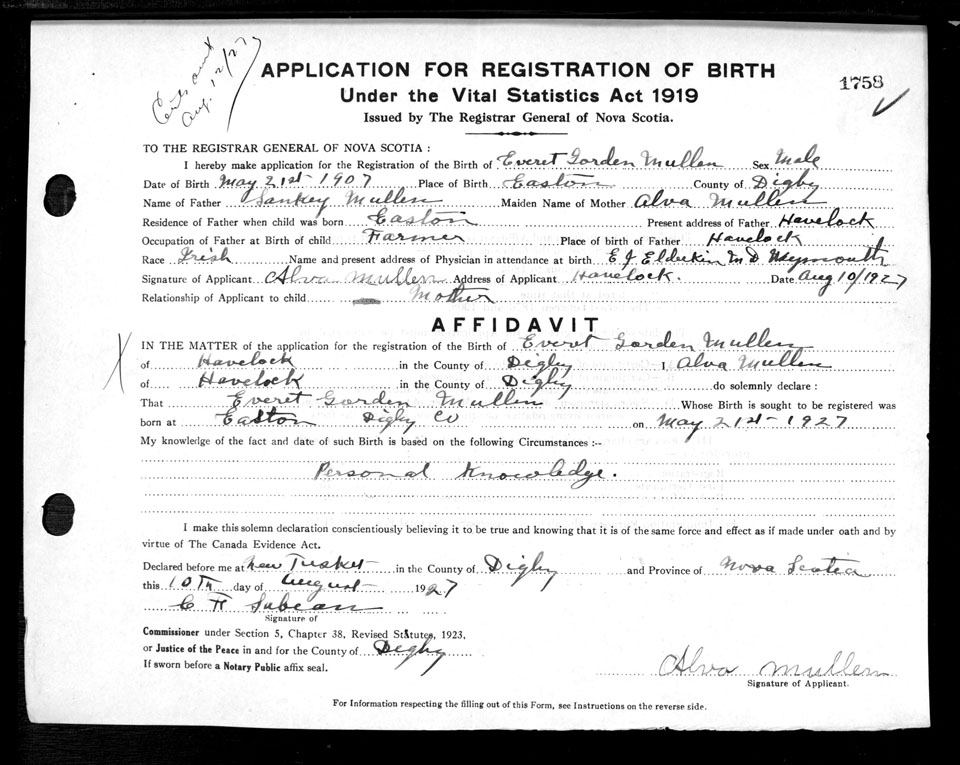 Aug. 12/27
APPLICATION FOR REGISTRATION OF BIRTH
1758
Under the Vital Statistics Act 1919
Issued by The Registrar General of Nova Scotia.
TO THE REGISTRAR GENERAL OF NOVA SCOTIA :
I hereby make application for the Registration of the Birth of Everet Gorden Mullen Sex Male
Date of Birth May 21st - 1907 Place of Birth Easton County of Digby
Name of Father Sankey Mullen Maiden Name of Mother Alva Mullen
Residence of Father when child was born Easton Present address of Father Havelock
Occupation of Father at Birth of child Farmer Place of birth of Father Havelock
Race Irish Name and present address of Physician in attendance at birth E J Elderkin M D Weymouth
Signature of Applicant Alva Mullen Address of Applicant Havelock. Date Aug 10/1927
Relationship of Applicant to child Mother
AFFIDAVIT
IN THE MATTER of the application for the registration of the Birth of Everet Gorden Mullen
of Havelock in the County of Digby I, Alva Mullen
of Havelock in the County of Digby do solemnly declare :
That Everet Gorden Mullen Whose Birth is sought to be registered was
born at Easton Digby Co on May 21st - 1927
My knowledge of the fact and date of such Birth is based on the following Circumstances :--
Personal Knowledge.
I make this solemn declaration conscientiously believing it to be true and knowing that it is of the same force and effect as if made under oath and by
virtue of The Canada Evidence Act.
Declared before me at New Tusket in the County of Digby and Province of Nova Scotia
this 10th day of August 1927
C H Sabean
Signature of
Commissioner under Section 5, Chapter 38, Revised Statutes, 1923,
or Justice of the Peace in and for the County of Digby
If sworn before a Notary Public affix seal.
Alva Mullen
Signature of Applicant.
For Information respecting the filling out of this Form, see Instructions on the reverse side.